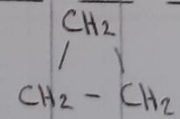 CH2
/ \
CH2 - CH2